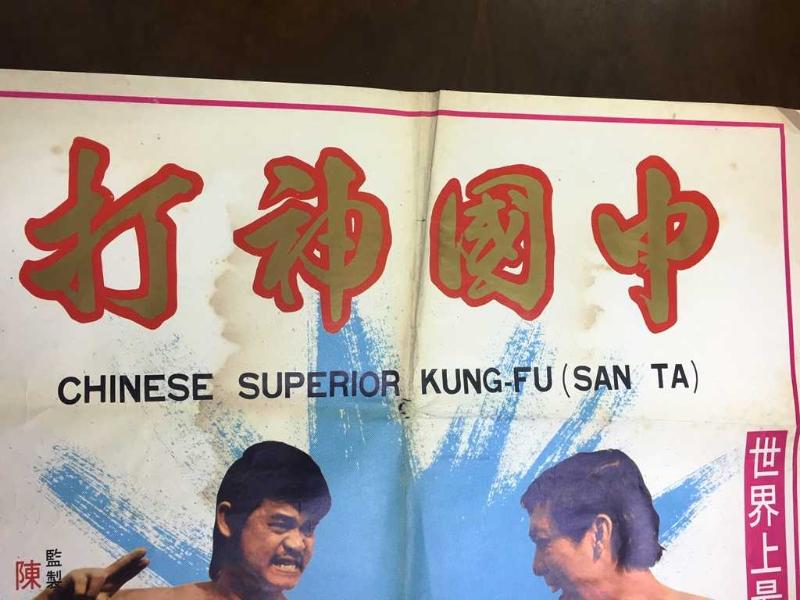 中國神打
CHINESE SUPERIOR KUNG-FU (SAN TA)
世界上
監製
陳